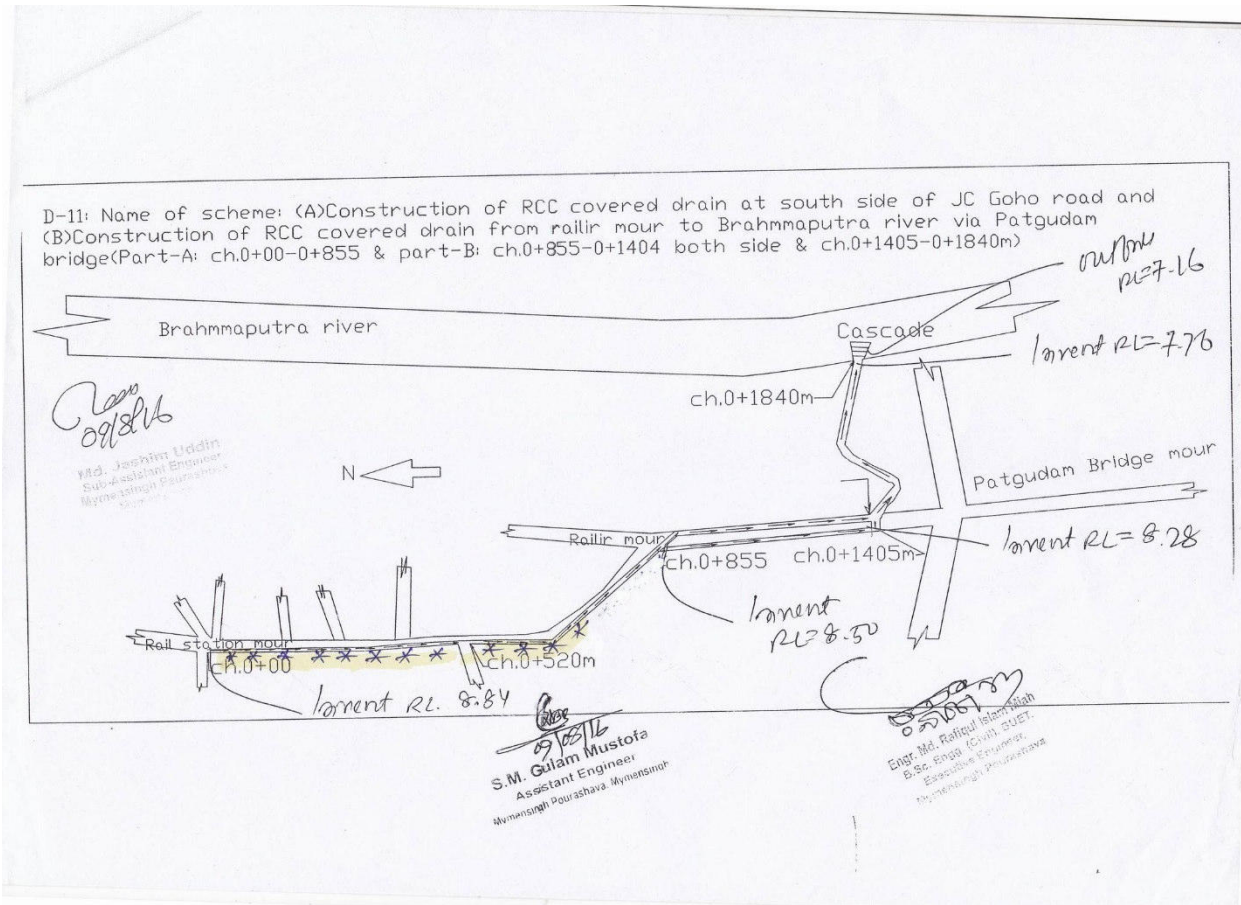 D-11: Name of scheme: (A)Construction of RCC covered drain at south side of JC Goho road and
(B)Construction of RCC covered drain from railir mour to Brahmmaputra river via Patgudam
bridge(Part-A: ch.0+00-0+855 & part-B: ch.0+855-0+1404 both side & ch.0+1405-0+1840m)
RL=7.16
Brahmmaputra river
Cascade
Invert RL=7.76
ch.0+1840m
09/8/16
Md. Jashim Uddin
Sub-Assistant Engineer
Mymensingh Pourashava
N
Patgudam Bridge mour
Railir mour
ch.0+855
ch.0+1405m
Invert RL= 8.28
Invert
RL=8.50
Rail station mour
ch.0+00
ch.0+520m
Invert RL. 8.84
09/08/16
S.M. Gulam Mustofa
Assistant Engineer
Mymensingh Pourashava, Mymensingh
Engr. Md. Rafiqul Islam Miah
B.Sc. Engg. (Civil), BUET.
Executive Engineer,
Mymensingh Pourashava